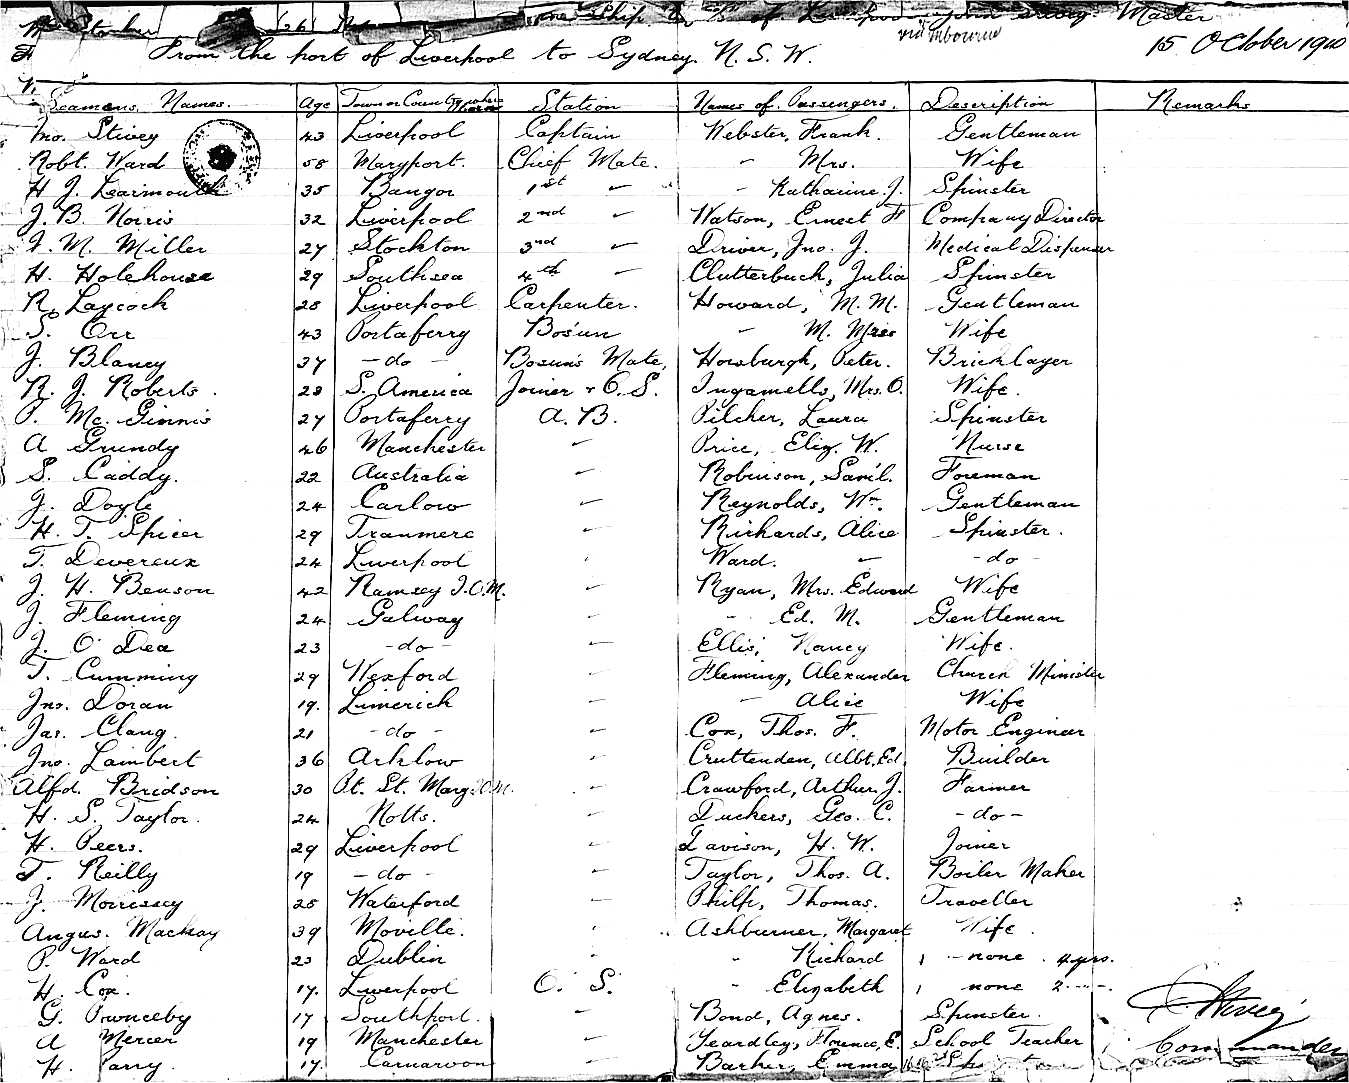 Ship of Liverpool Master
via Melbourne
From the port of Liverpool to Sydney. N. S. W. 15 October 1910
Seamens Names. Age Town or County where born Station Names of Passengers. Description Remarks
Jno. Stivey 43 Liverpool Captain Webster, Frank. Gentleman
Robt. Ward 58 Maryport. Chief Mate. " Mrs. Wife
H J. Learmouth 35 Bangor 1st " " Katharine. J. Spinster
J. B. Norris 32 Liverpool 2nd " Watson, Ernest F Company Director
J. M. Miller 27 Stockton 3rd " Driver, Jno. J. Medical Dispenser
H. Holehouse 29 Southsea 4th " Clutterbuck, Julia Spinster
R. Laycock 28 Liverpool Carpenter. Howard, M. M. Gentleman
S. Orr 43 Portaferry Bosun " M. Mrs Wife
J. Blaney 37 - do - Bosun's Mate, Horsburgh, Peter. Bricklayer
R. J. Roberts. 23 S. America Joiner & O. S. Ingamells, Mrs. O. Wife.
P. Mc. Ginnis 27 Portaferry A. B. Pilcher, Laura Spinster
A Grundy 46 Manchester " Price, Eliz. W. Nurse
S. Caddy. 22 Australia " Robinson, Saml. Foreman
J. Doyle 24 Carlow " Reynolds, Wm. Gentleman
H. T. Spicer 29 Tranmere " Richards, Alice Spinster.
T. Devereux 24 Liverpool " Ward. " - do -
J. H. Benson 42 Ramsey I.O.M. " Ryan, Mrs. Edward Wife
J. Fleming 24 Galway " " Ed. M. Gentleman
J. O'Dea 23 - do - " Ellis, Nancy Wife.
T. Cumming 29 Wexford " Fleming, Alexander Church Minister
Jno. Doran 19. Limerick " " Alice Wife
Jas. Clang. 21 - do - " Cox, Thos. F. Motor Engineer
Jno. Lambert 36 Arklow " Cruttenden, Albt. Ed. Builder
Alfd. Bridson 30 Pt. St. Mary. I.O.M. " Crawford, Arthur. J. Farmer
H. S. Taylor. 24 Notts. " Duckers, Geo. C. - do -
H. Peers. 29 Liverpool " Davison, H. W. Joiner
T. Reilly 19 - do - " Taylor, Thos. A. Boiler Maker
J. Morrissey 25 Waterford " Philp, Thomas. Traveller
Angus. Mackay 39 Moville. " Ashburner, Margaret Wife.
P. Ward 23 Dublin " " Richard " none. 4 yrs.
H. Cox. 17. Liverpool O. S. " Elizabeth " none 2 "
G. Ownceby 17 Southport. " Bond, Agnes. Spinster.
A Mercer 19 Manchester " Yeardley, Florence, E. School Teacher
H. Parry. 17. Carnarvon " Barker, Emma
J Stivey
Commander